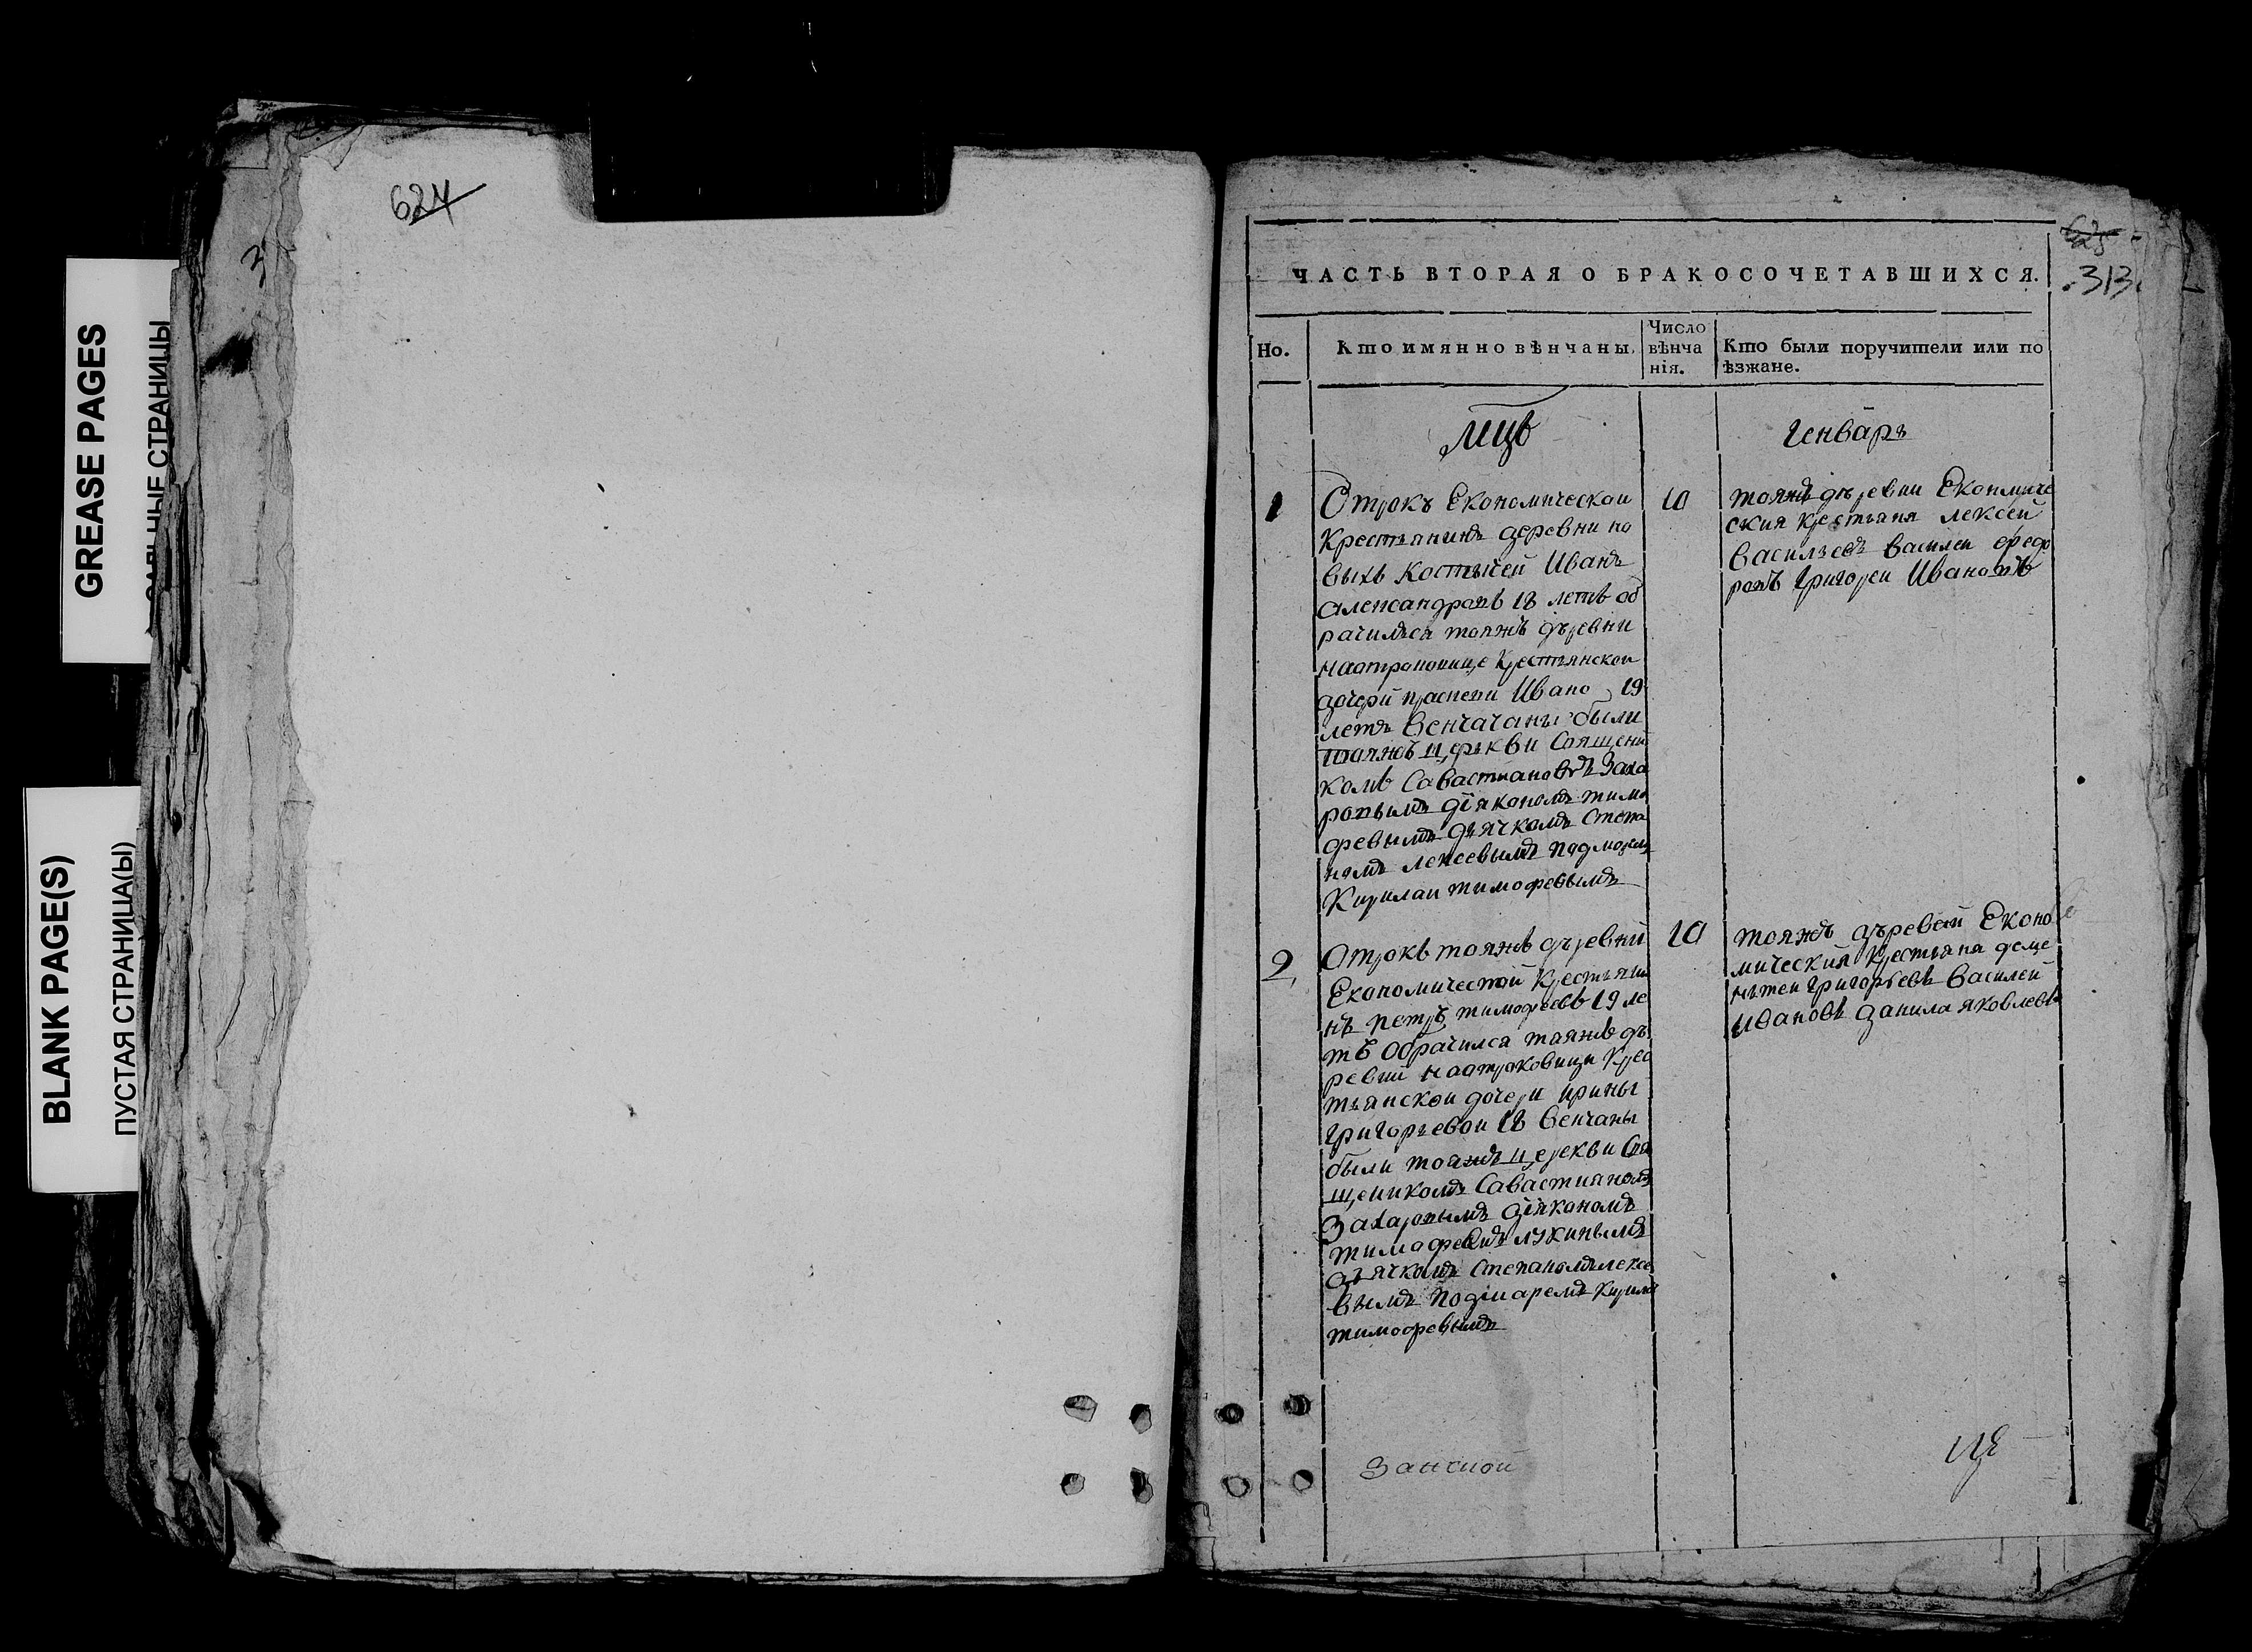 624
GREASE PAGES
САЛЬНЫЕ СТРАНИЦЫ
BLANK PAGE(S)
ПУСТАЯ СТРАНИЦА(Ы)
625
313
ЧАСТЬ ВТОРАЯ О БРАКОСОЧЕТАВШИХСЯ.
Но.
Кто имянно вѣнчаны.
Число
вѣнча
нія.
Кто были поручители или по
ѣзжане.
Мцъ
Генварь
1
Отрокъ Економическои
Крестьянинъ деревни но
выхъ Костычей Иванъ
Александровъ 18 летъ об
рачился тояжъ дъревни
наотроковице Крестьянскои
дочери праскеви Ивано 19
летъ Венчачаны были
тояжъ церькви Священи
комъ Савастиановъ Заха
ровымъ діякономъ тимо
февымъ дьячкомъ Степа
номъ лексевымъ
Кирилаи тимофевымъ
10
тояжъ дъревни Економиче
ския крестьяня лексей
Васильевъ Василеи федо
ровъ Григореи Ивановъ
2
Отрокъ тояжъ дъревни
Економической Крестьяни
нъ петръ тимофеевъ 19 ле
тъ обрачился тояжъ дъ
ревни наотроковицы Крес
тьянскои дочери ирины
григорьевои 18 Венчаны
были тояжъ церекви Свя
щеникомъ Савастияномъ
Захаровымъ діякономъ
тимофеемъ лукинымъ
дьячкомъ Степаномъ лексе
вымъ Кирила
тимофевымъ
10
тояжъ дъревни Еконо
мическия крестьяня деме
нътеи григорьевъ Василей
Ивановъ данила яковлевъ